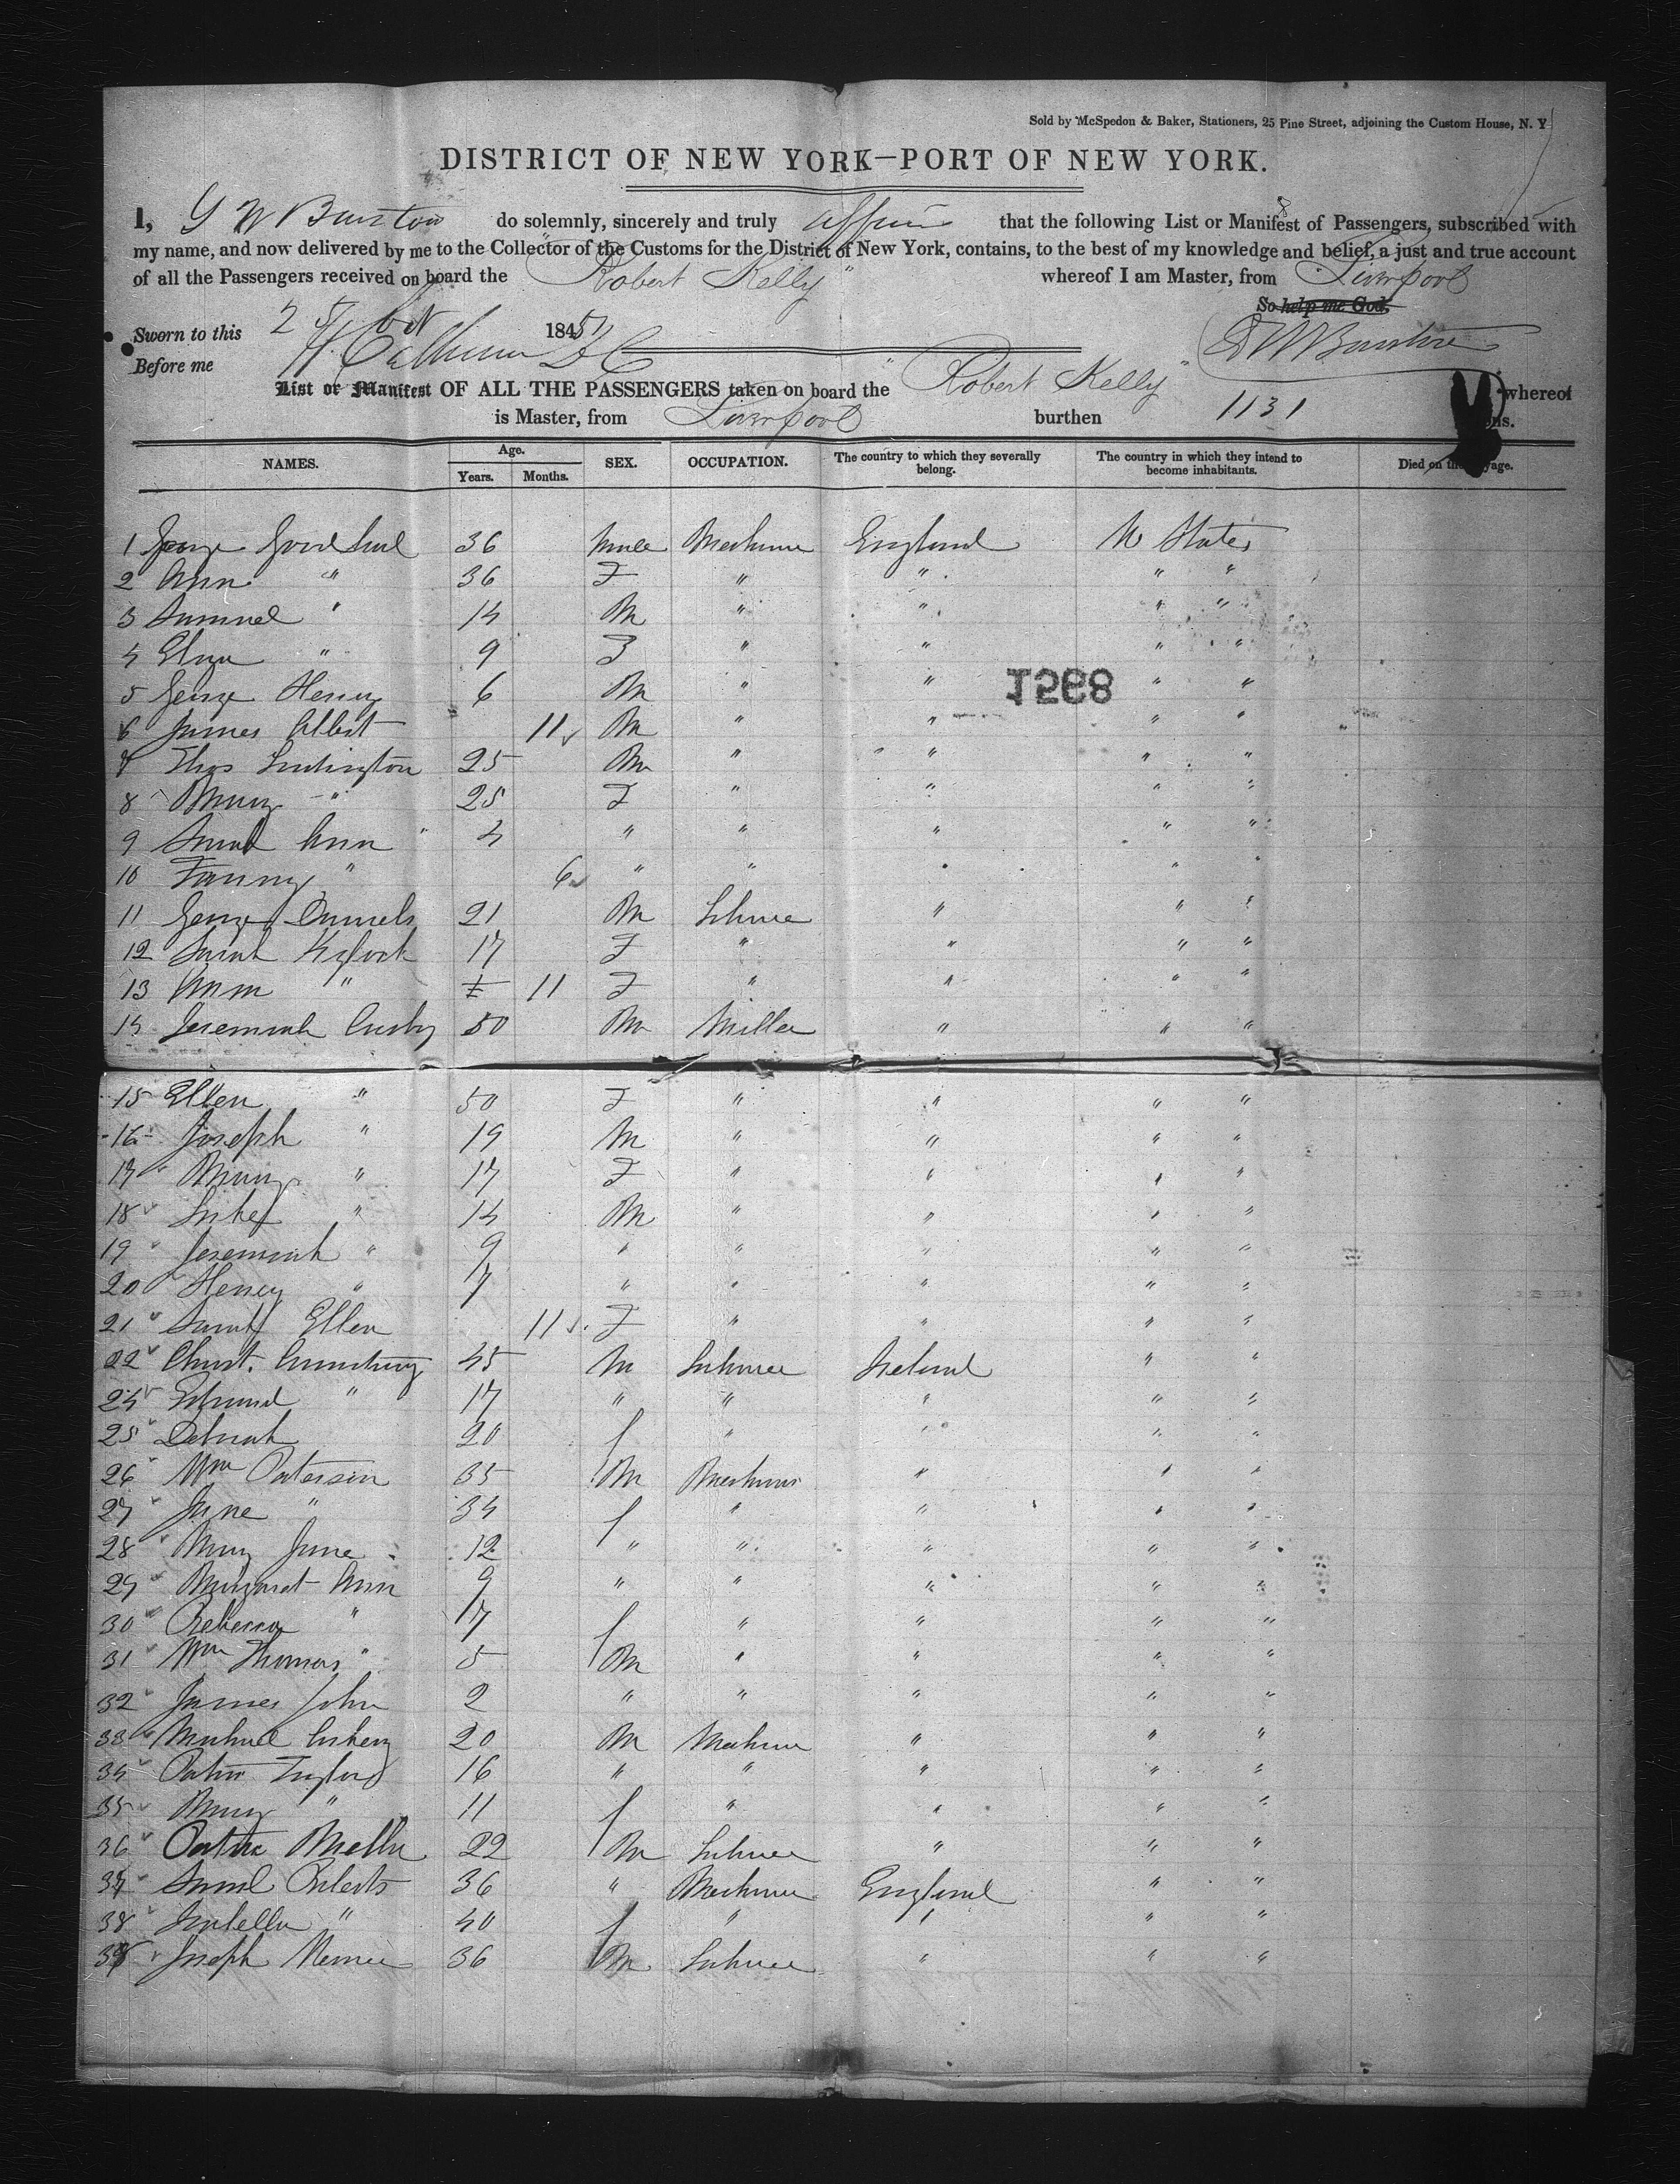 Sold by McSpedon & Baker, Stationers, 25 Pine Street, adjoining the Custom House, N. Y
DISTRICT OF NEW YORK—PORT OF NEW YORK.
I, G W Burston do solemnly, sincerely and truly affirm that the following List or Manifest of Passengers, subscribed with
my name, and now delivered by me to the Collector of the Customs for the District of New York, contains, to the best of my knowledge and belief, a just and true account
of all the Passengers received on board the "Robert Kelly" whereof I am Master, from Liverpool
So help me God.
Sworn to this 25 Oct 1851
Before me
List or Manifest OF ALL THE PASSENGERS taken on board the "Robert Kelly" whereof
is Master, from Liverpool burthen 1131
NAMES. Age. SEX. OCCUPATION. The country to which they severally belong. The country in which they intend to become inhabitants. Died on the
Years. Months.
1 George 36 Male England U States
2 Ann " 36 F " " " "
3 Samuel " 14 M " " " "
4 " 9 F " " " "
5 George Henry 6 M " " " "
6 James Albert 11 M " " " "
7 Thos 25 M " " " "
8 Mary " 25 F " " " "
9 Sarah Ann " 4 " " " " "
10 Fanny " 6 " " " " "
11 George Daniels 21 M " " "
12 Sarah 17 F " " " "
13 Ann " 11 F " " " "
14 Jeremiah 50 M Miller " " "
15 Ellen " 50 F " " " "
16 Joseph " 19 M " " " "
17 Mary " 17 F " " " "
18 " 14 M " " " "
19 Jeremiah " 9 " " " " "
20 Henry " 7 " " " " "
21 Sarah Ellen 11 F " " " "
22 Christ. Armstrong 45 M Labourer Ireland " "
24 Edmund " 17 " " " " "
25 Deborah 20 f " " " "
26 Wm Paterson 35 M " " "
27 Jane " 34 f " " " "
28 Mary Jane 12 " " " " "
29 Margaret Ann 9 " " " " "
30 Rebecca " 7 f " " " "
31 Wm Thomas " 5 M " " " "
32 James John 2 " " " " "
33 Michael 20 M " " "
34 16 " " " " "
35 Mary " 11 f " " " "
36 22 M Labourer " " "
37 Saml Roberts 36 " England " "
38 Isabella " 40 f " " " "
39 Joseph 36 M Labourer " " "
1568